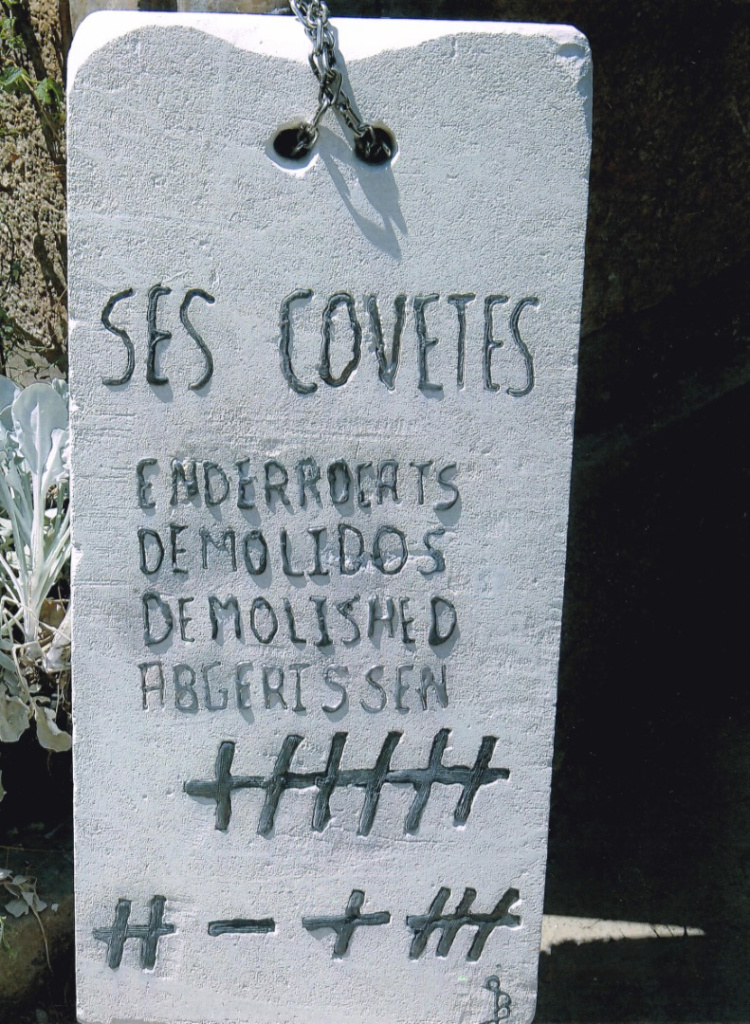 SES COVETES
ENDERROCATS
DEMOLIDOS
DEMOLISHED
ABGERISSEN